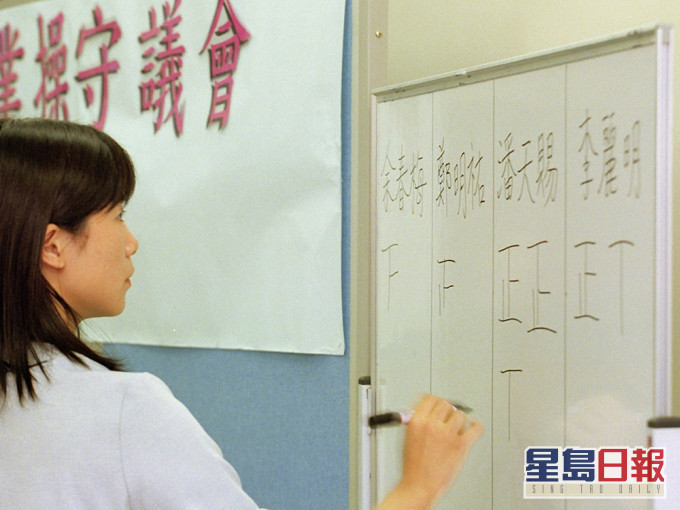 業操守議會
余春梅 鄭明祐 潘天賜 李麗明
下 正 正 正 丅
丅
星島日報
SING TAO DAILY